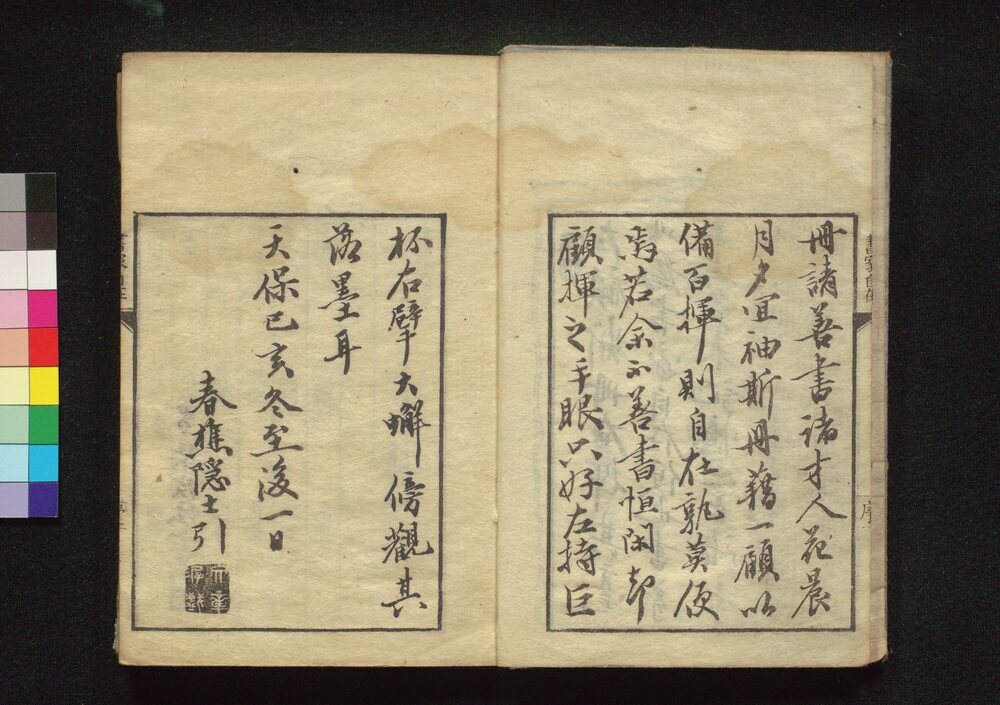 冊諸善書諸才人花晨
月夕宜袖斯冊藉一顧以
備百揮則自在孰莫便
焉若余不善書恒閑却
顧揮之手眼只好左持巨
杯右擘大蠏傍觀其
落墨耳
天保己亥冬至後一日
春樵隠士引